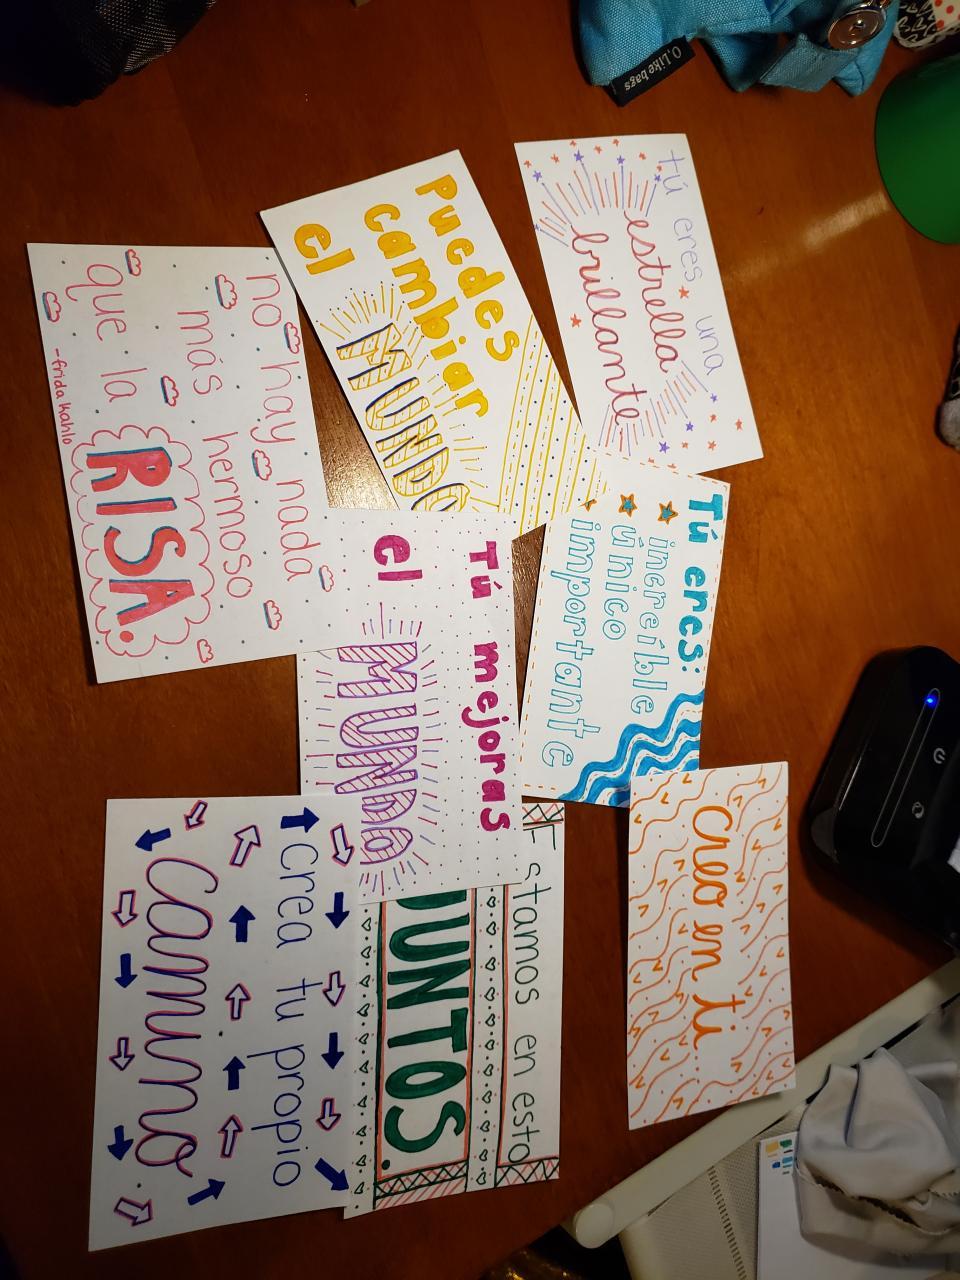 tú eres una
estrella
brillante
Puedes
cambiar
el
MUNDO
no hay nada
más hermoso
que la RISA.
-frida kahlo
Tú eres:
increíble
único
importante
Tú mejoras
el MUNDO
creo en ti
Estamos en esto
JUNTOS.
Crea tu propio
camino
O, Like bags